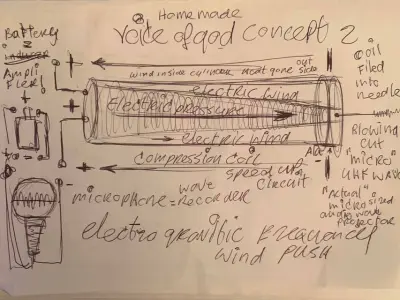 Homemade
Voice of god concept 2
Battery
=
Ampli
Fier
+
wind inside cylinder
out
gone side
electric wind
electric pressure
electric wind
+
compression coil
speed up
circuit
microphone = wave
recorder
coil
filed
into
needle
Blowing
out
"micro"
UHF WAVE
"Actual"
micro sized
audio wave
electro gravitic frequency
wind push